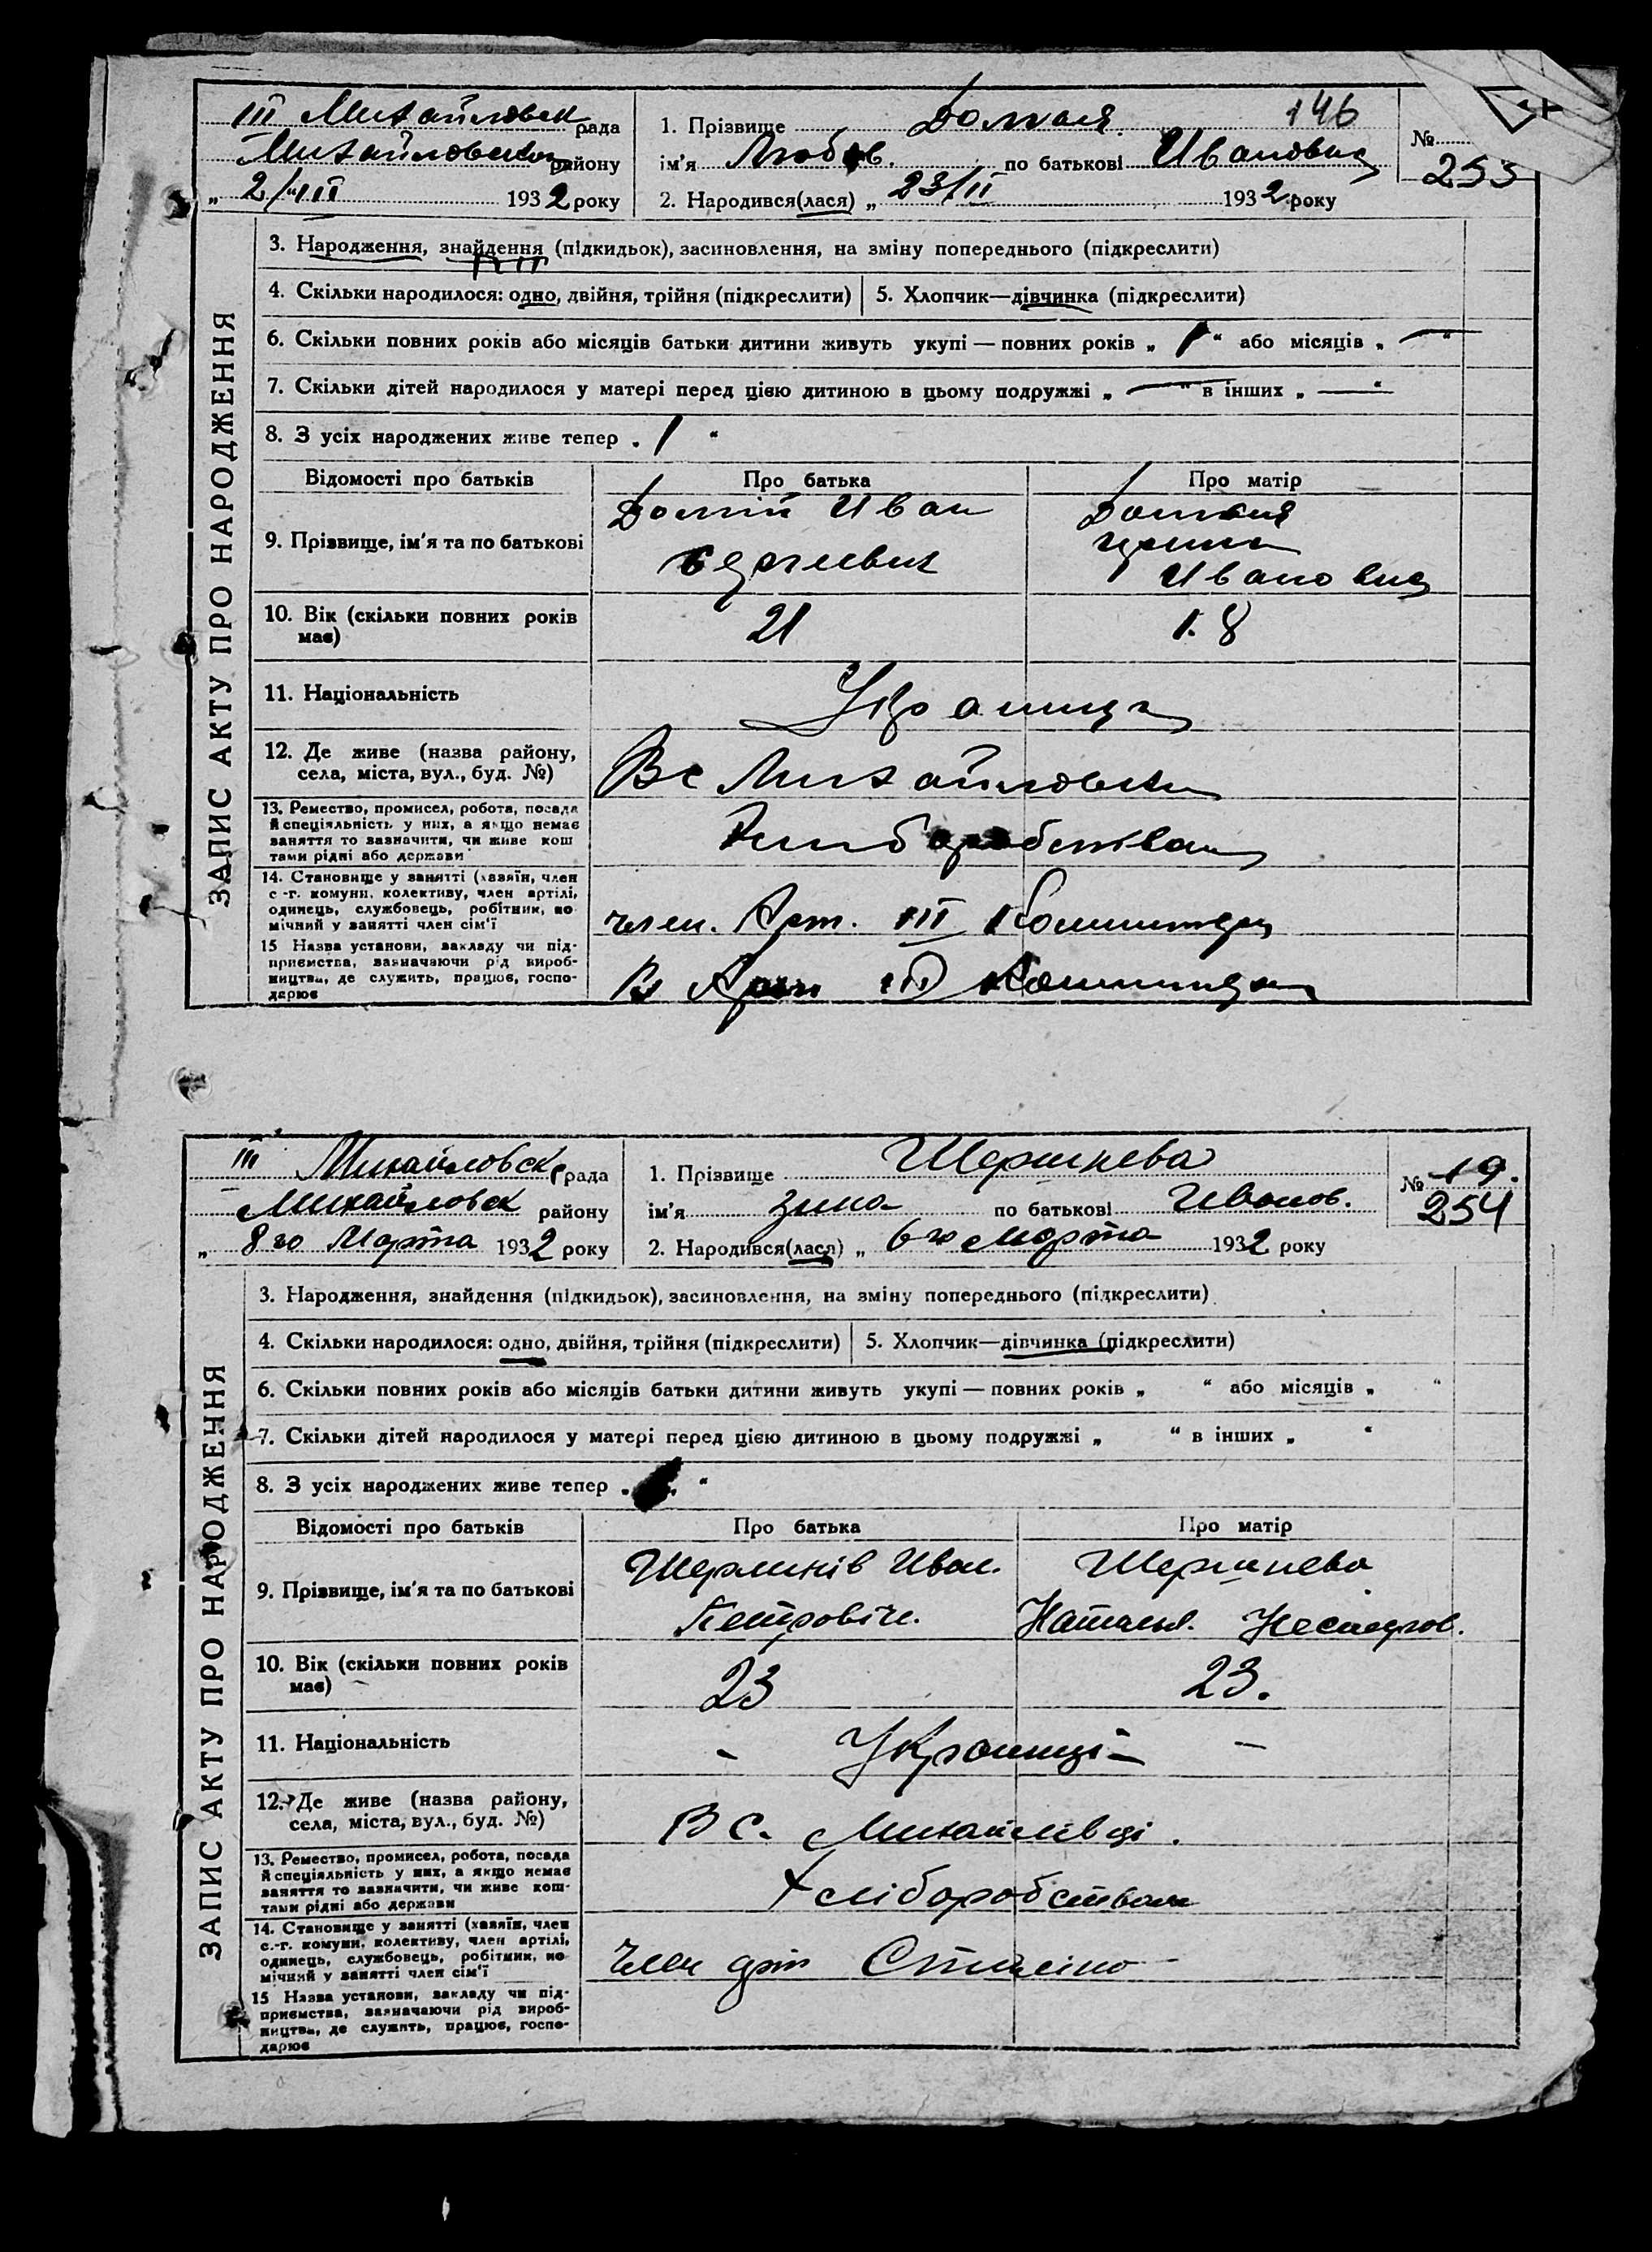 III Михайловск рада
Михайловского району
„ 2/III 1932 року
146
1. Прізвище Долгая
ім'я Любов по батькові Ивановна
2. Народився(лася) „ 23/II 1932 року
№
253
ЗАПИС АКТУ ПРО НАРОДЖЕННЯ
3. Народження, знайдення (підкидьок), засиновлення, на зміну попереднього (підкреслити)
4. Скільки народилося: одно, двійня, трійня (підкреслити) 5. Хлопчик—дівчинка (підкреслити)
6. Скільки повних років або місяців батьки дитини живуть укупі — повних років „ 1 “ або місяців „ — “
7. Скільки дітей народилося у матері перед цією дитиною в цьому подружжі „ — “ в інших „ — “
8. З усіх народжених живе тепер „ 1 “
Відомості про батьків Про батька Про матір
9. Прізвище, ім'я та по батькові
Иван
Ивановна
10. Вік (скільки повних років має) 21 18
11. Національність
12. Де живе (назва району, села, міста, вул., буд. №)
В с Михайловки
13. Ремество, промисел, робота, посада
й спеціяльність у них, а якщо немає
заняття то зазначити, чи живе кош
тами рідні або держави
14. Становище у занятті (хазяїн, член
с.-г. комуни, колективу, член артілі,
одинець, службовець, робітник, по
мічний у занятті член сім'ї
член. Арт. III Коминтерн
15 Назва установи, закладу чи під-
приємства, зазначаючи рід вироб-
ництва, де служить, працює, госпо-
дарює
В Арт III Коминтерн
III Михайловск рада
Михайловск району
„ 8го Марта 1932 року
1. Прізвище Шершнева
ім'я Зина по батькові Иванов.
2. Народився(лася) „ 6го Марта 1932 року
№ 19.
254
ЗАПИС АКТУ ПРО НАРОДЖЕННЯ
3. Народження, знайдення (підкидьок), засиновлення, на зміну попереднього (підкреслити)
4. Скільки народилося: одно, двійня, трійня (підкреслити) 5. Хлопчик—дівчинка (підкреслити)
6. Скільки повних років або місяців батьки дитини живуть укупі — повних років „ “ або місяців „ “
7. Скільки дітей народилося у матері перед цією дитиною в цьому подружжі „ “ в інших „ “
8. З усіх народжених живе тепер „ “
Відомості про батьків Про батька Про матір
9. Прізвище, ім'я та по батькові
Шершнів Иван. Шершнева
Петровіч. Наталья. Нестеров.
10. Вік (скільки повних років має) 23 23.
11. Національність - Українці - -
12. Де живе (назва району, села, міста, вул., буд. №)
В с. Михайлівці.
13. Ремество, промисел, робота, посада
й спеціяльність у них, а якщо немає
заняття то зазначити, чи живе кош-
тами рідні або держави
Хліборобством
14. Становище у занятті (хазяїн, член
с.-г. комуни, колективу, член артілі,
одинець, службовець, робітник, по
мічний у занятті член сім'ї
Член арт Сталіно
15 Назва установи, закладу чи під-
приємства, зазначаючи рід вироб-
ництва, де служить, працює, госпо-
дарює